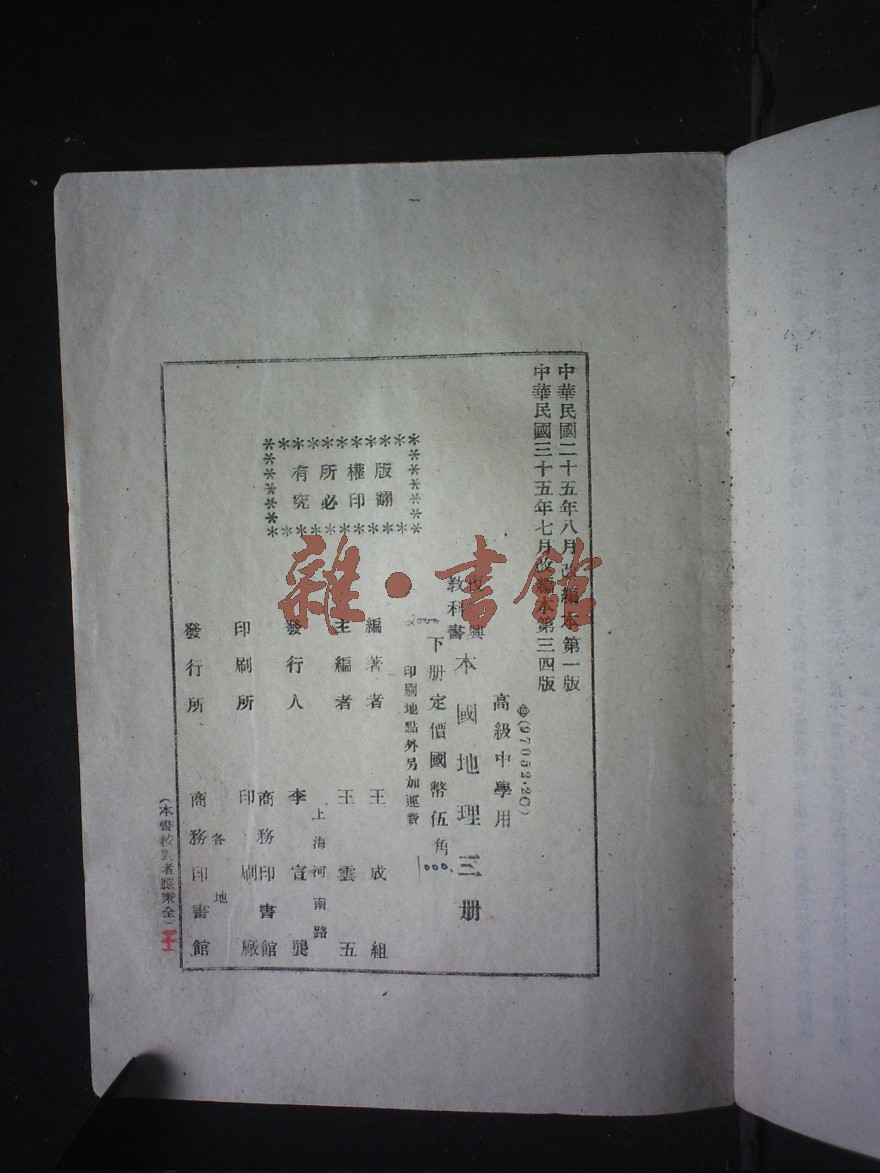 中華民國二十五年八月改編本第一版
中華民國三十五年七月改編本第三四版
(97052·2C)
高級中學用
復興
教科書
本國地理三册
下册定價國幣伍角
印刷地點外另加運費
版權所有
翻印必究
編著者 王成組
主編者 王雲五
上海河南路
發行人 李宣龔
印刷所 商務印書館
印刷廠
發行所 各地
商務印書館
(本書校對者
雜·書館